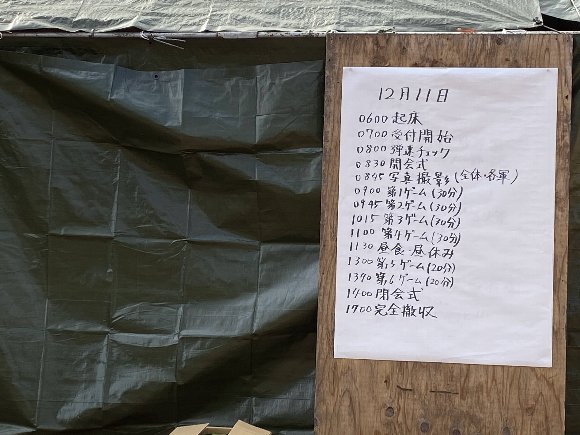 12月11日
0600 起床
0700 受付開始
0800 弾速チェック
0830 開会式
0845 写真撮影(全体・各軍)
0900 第1ゲーム(30分)
0945 第2ゲーム(30分)
1015 第3ゲーム(30分)
1100 第4ゲーム(30分)
1130 昼食・昼休み
1300 第5ゲーム(20分)
1340 第6ゲーム(20分)
1400 閉会式
1700 完全撤収